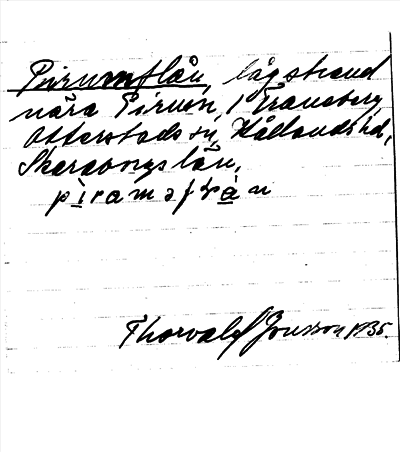 Pirumflån, lågstrand
nära Pirum, i Traneberg,
Otterstads sn, Kållands hd,
Skaraborgs län.
Thorvald Jonsson 1935.